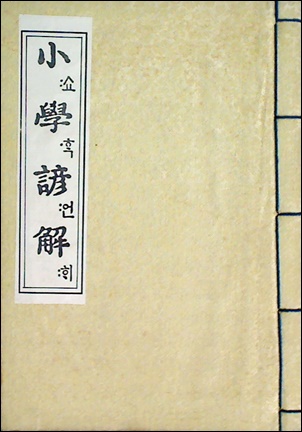 小:쇼學·ᄒᆞᆨ諺:언解:ᄒᆡ